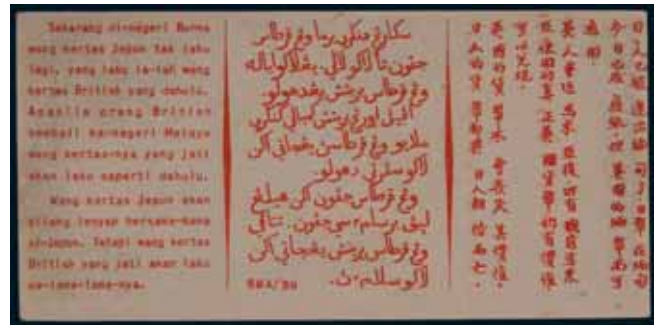 Sekarang di-negeri Burma
wang kertas Jepun tak laku
lagi, yang laku ia-lah wang
kertas British yang dahulu.
Apabila orang British
kembali ka-negeri Melayu
wang kertas-nya yang jati
akan laku saperti dahulu.
Wang kertas Jepun akan
hilang lenyap bersama-sama
si-Jepun. Tetapi wang kertas
British yang jati akan laku
sa-lama-lama-nya.
سکارڠ دنݢري برما وڠ قرطاس
جڤون تا لاکو لاݢي، يڠ لاکو اياله
وڠ قرطاس برتش يڠ دهولو
اڤبيل اورڠ برتش کمبالي کنݢري
ملايو وڠ قرطاسڽ يڠ جاتي اکن
لاکو سڤرتي دهولو.
وڠ قرطاس جڤون اکن هيلڠ
لڽڤ برسام٢ سي جڤون. تتاڤي
وڠ قرطاس برتش يڠ جاتي اکن
لاکو سلام٢ڽ.
日人已被逐出緬甸了日幣在緬甸
今日已成廢紙但英國的緬幣尚可
通用
英人重返馬來亞後所有戰前在馬來
亞使用的真正英國貨幣仍有價值
可以兌現
英國的貨幣永
日人的貨幣